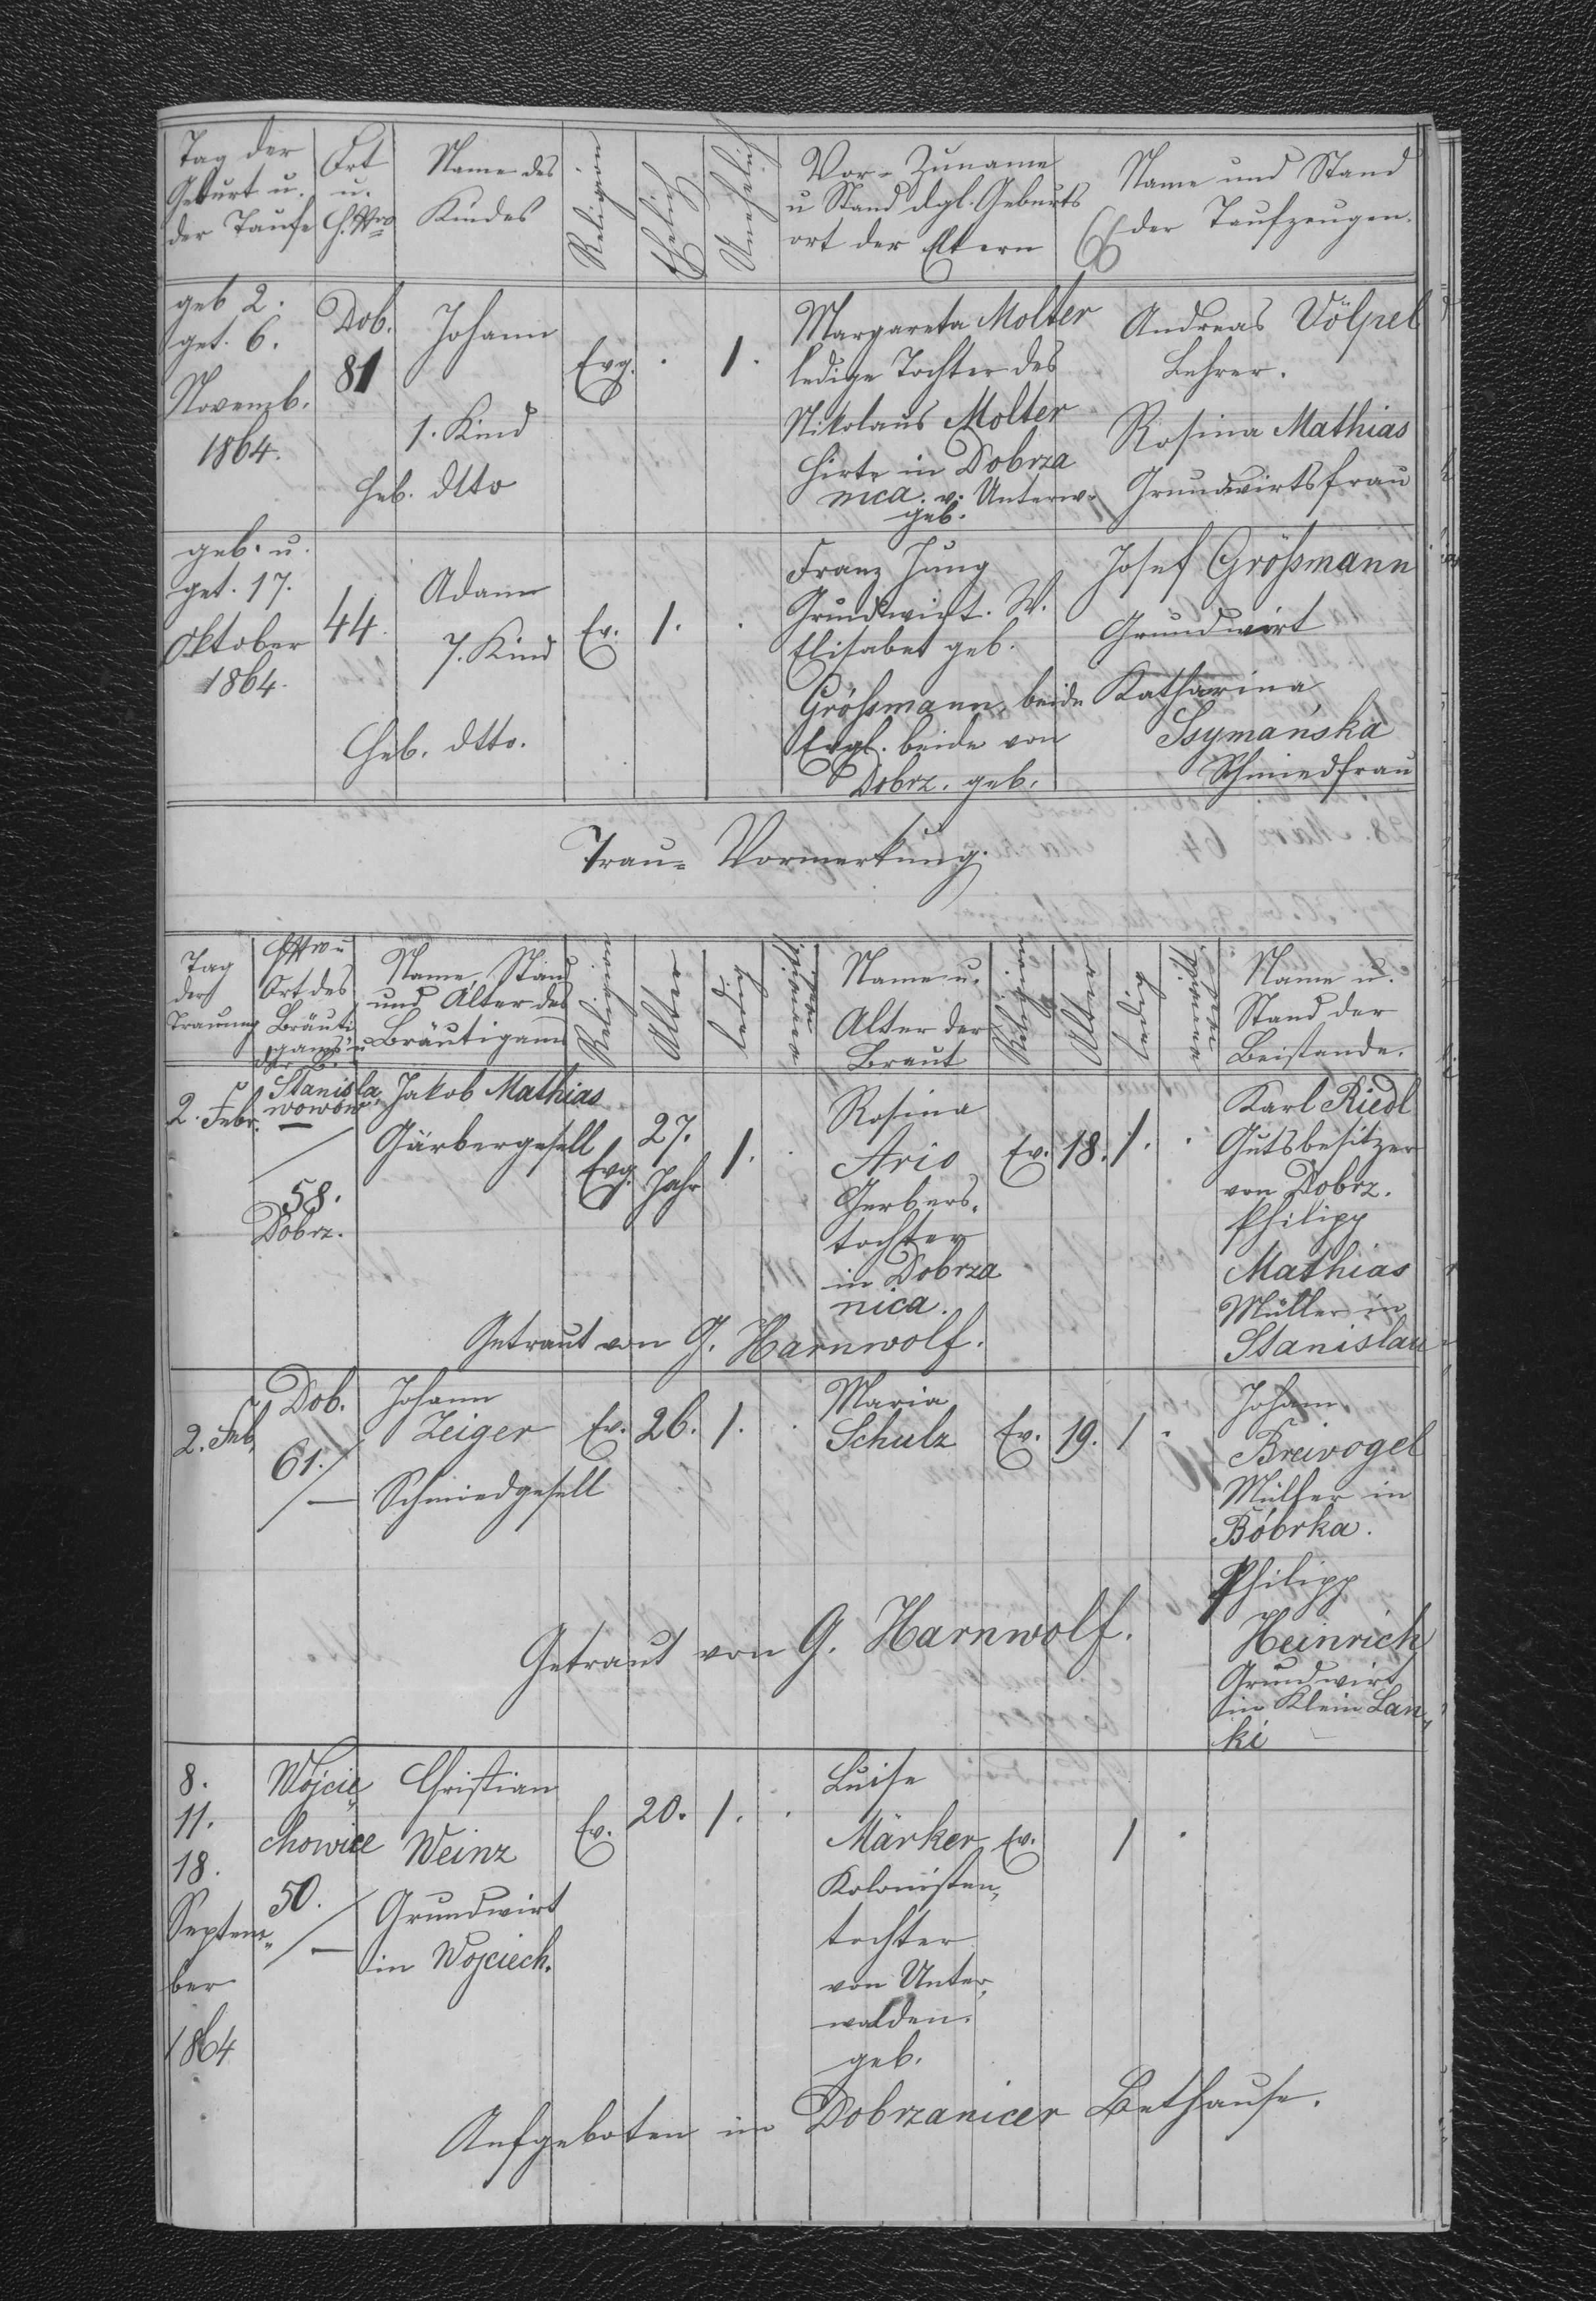 Tag der
Geburt u.
der Taufe
Ort
u.
H. Nro
Name des
Kindes
Religion
Ehelich
Unehelich
Vor- Zuname
u Stand dgl. Geburts
ort der Eltern
Name und Stand
der Taufzeugen.
geb 2.
get. 6.
Novemb.
1864.
Dob.
81
Johann
1. Kind
Heb. dtto
Evg.
.
1.
Margareta Molter
ledige Tochter des
Nikolaus Molter
Hirte in Dobrza
nica. v. Unterw.
geb.
Andreas Völpel
Lehrer.
Rosina Mathias
Grundwirtsfrau
geb. u.
get. 17.
Oktober
1864.
44.
Adam
7. Kind
Heb. dtto.
Ev.
1.
.
Franz Jung
Grundwirt. W.
Elisabet geb.
Größmann, beide
Evgl. beide von
Dobrz. geb.
Josef Größmann
Grundwirt
Katharina
Ssymańska
Schmiedfrau
Trau- Vormerkung.
Tag
der
Trauung
H Nro u
Ort des
Bräuti
gams u
der B.
Name, Stand
und Alter des
Bräutigams
Religion
Alter
ledig
Name u.
Alter der
Braut
Religion
Alter
ledig
Name u.
Stand der
Beistande.
2. Febr.
Stanisla
wowów
58.
Dobrz.
Jakob Mathias
Gärbergesell
Evg.
27.
Jahr
1.
.
Rosina
Ario
Gerbers-
tochter
in Dobrza
nica.
Ev.
18.
1.
.
Karl Riedl
Gutsbesitzer
von Dobrz.
Philipp
Mathias
Müller in
Stanislau
Getraut von G. Harnwolf.
2. Feb.
Dob.
61.
Johann
Zeiger
Schmiedgesell
Ev.
26.
1.
.
Maria
Schulz
Ev.
19.
1
.
Johann
Breivogel
Müller in
Bóbrka.
Philipp
Heinrich
Grundwirt
in Klein Lan-
ki
Getraut von G. Harnwolf.
8.
11.
18.
Septem-
ber
1864
Wojcie-
chowice
50.
Christian
Weinz
Grundwirt
in Wojciech.
Ev.
20.
1.
.
Luise
Märker
Kolonisten-
tochter
von Unter-
walden.
geb.
Ev.
1
.
Aufgeboten im Dobrzanicer Bethause.